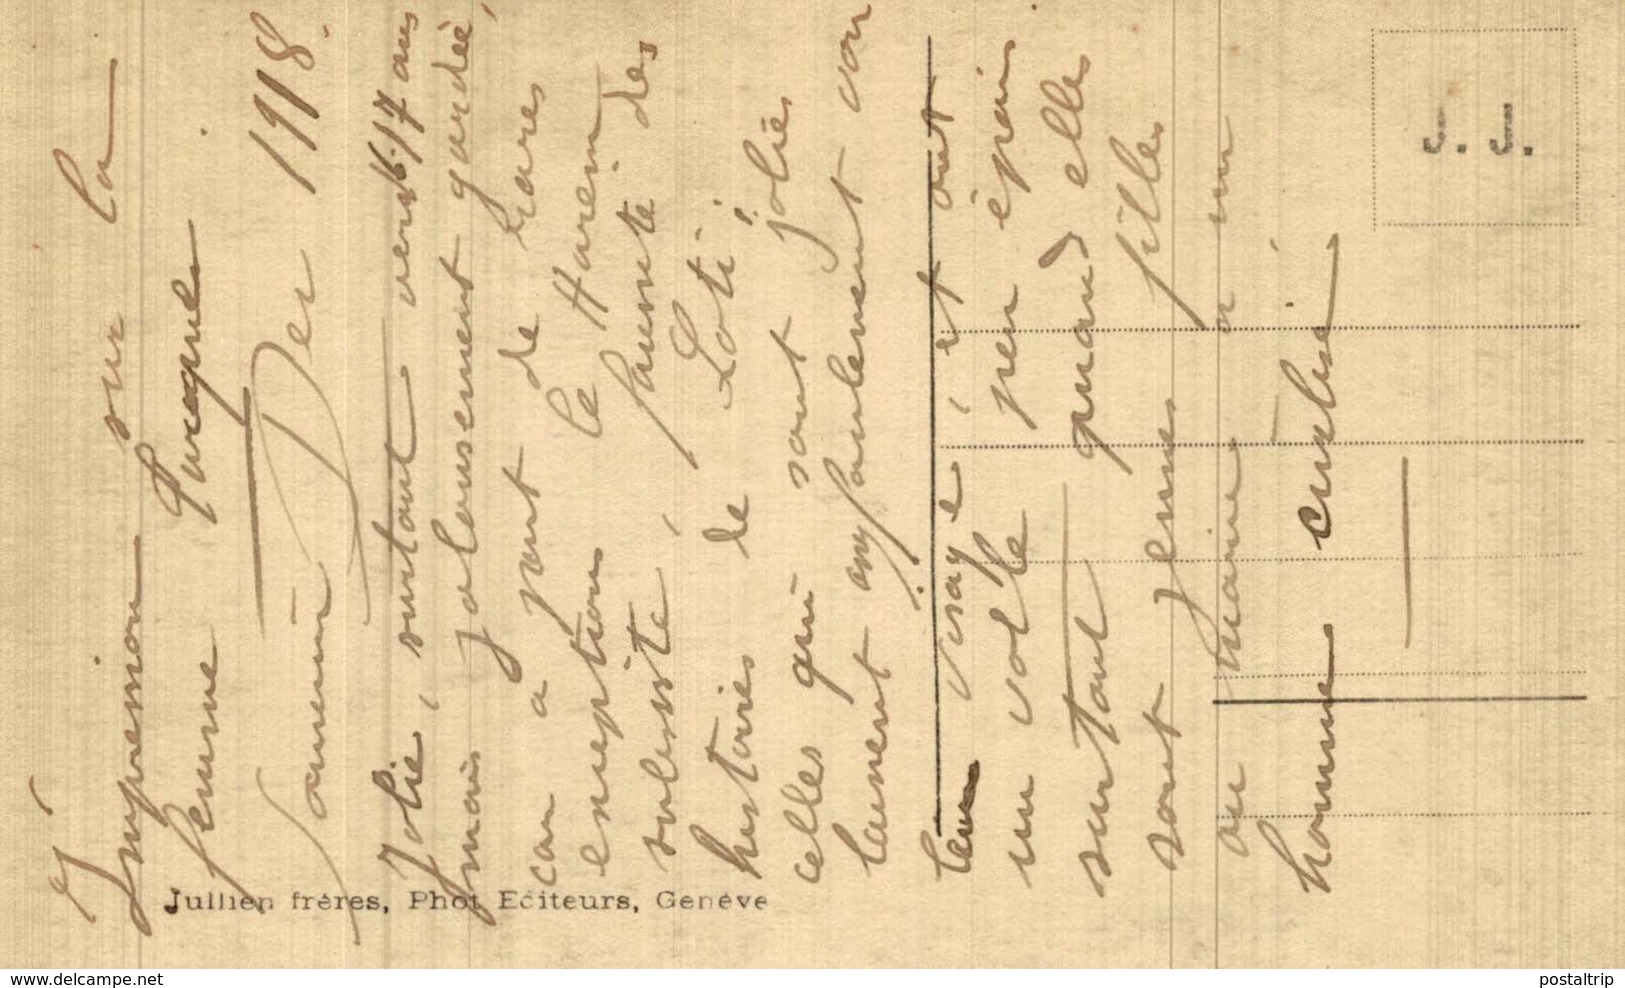 Impression sur la
femme Turque
Samedi Dec 1918.
Jolie, surtout vers 16.17 ans
mais jalousement gardée,
car à part de rares
exceptions le Harem
subsiste, parenté des
histoires de Loti!
celles qui sont jolies
laissent voir
leur visage, et ont
un voile peu épais
surtout quand elles
sont jeunes filles
ou mariée à un
homme civilisé
Jullien frères, Phot Editeurs, Genève
www.delcampe.net
postaltrip